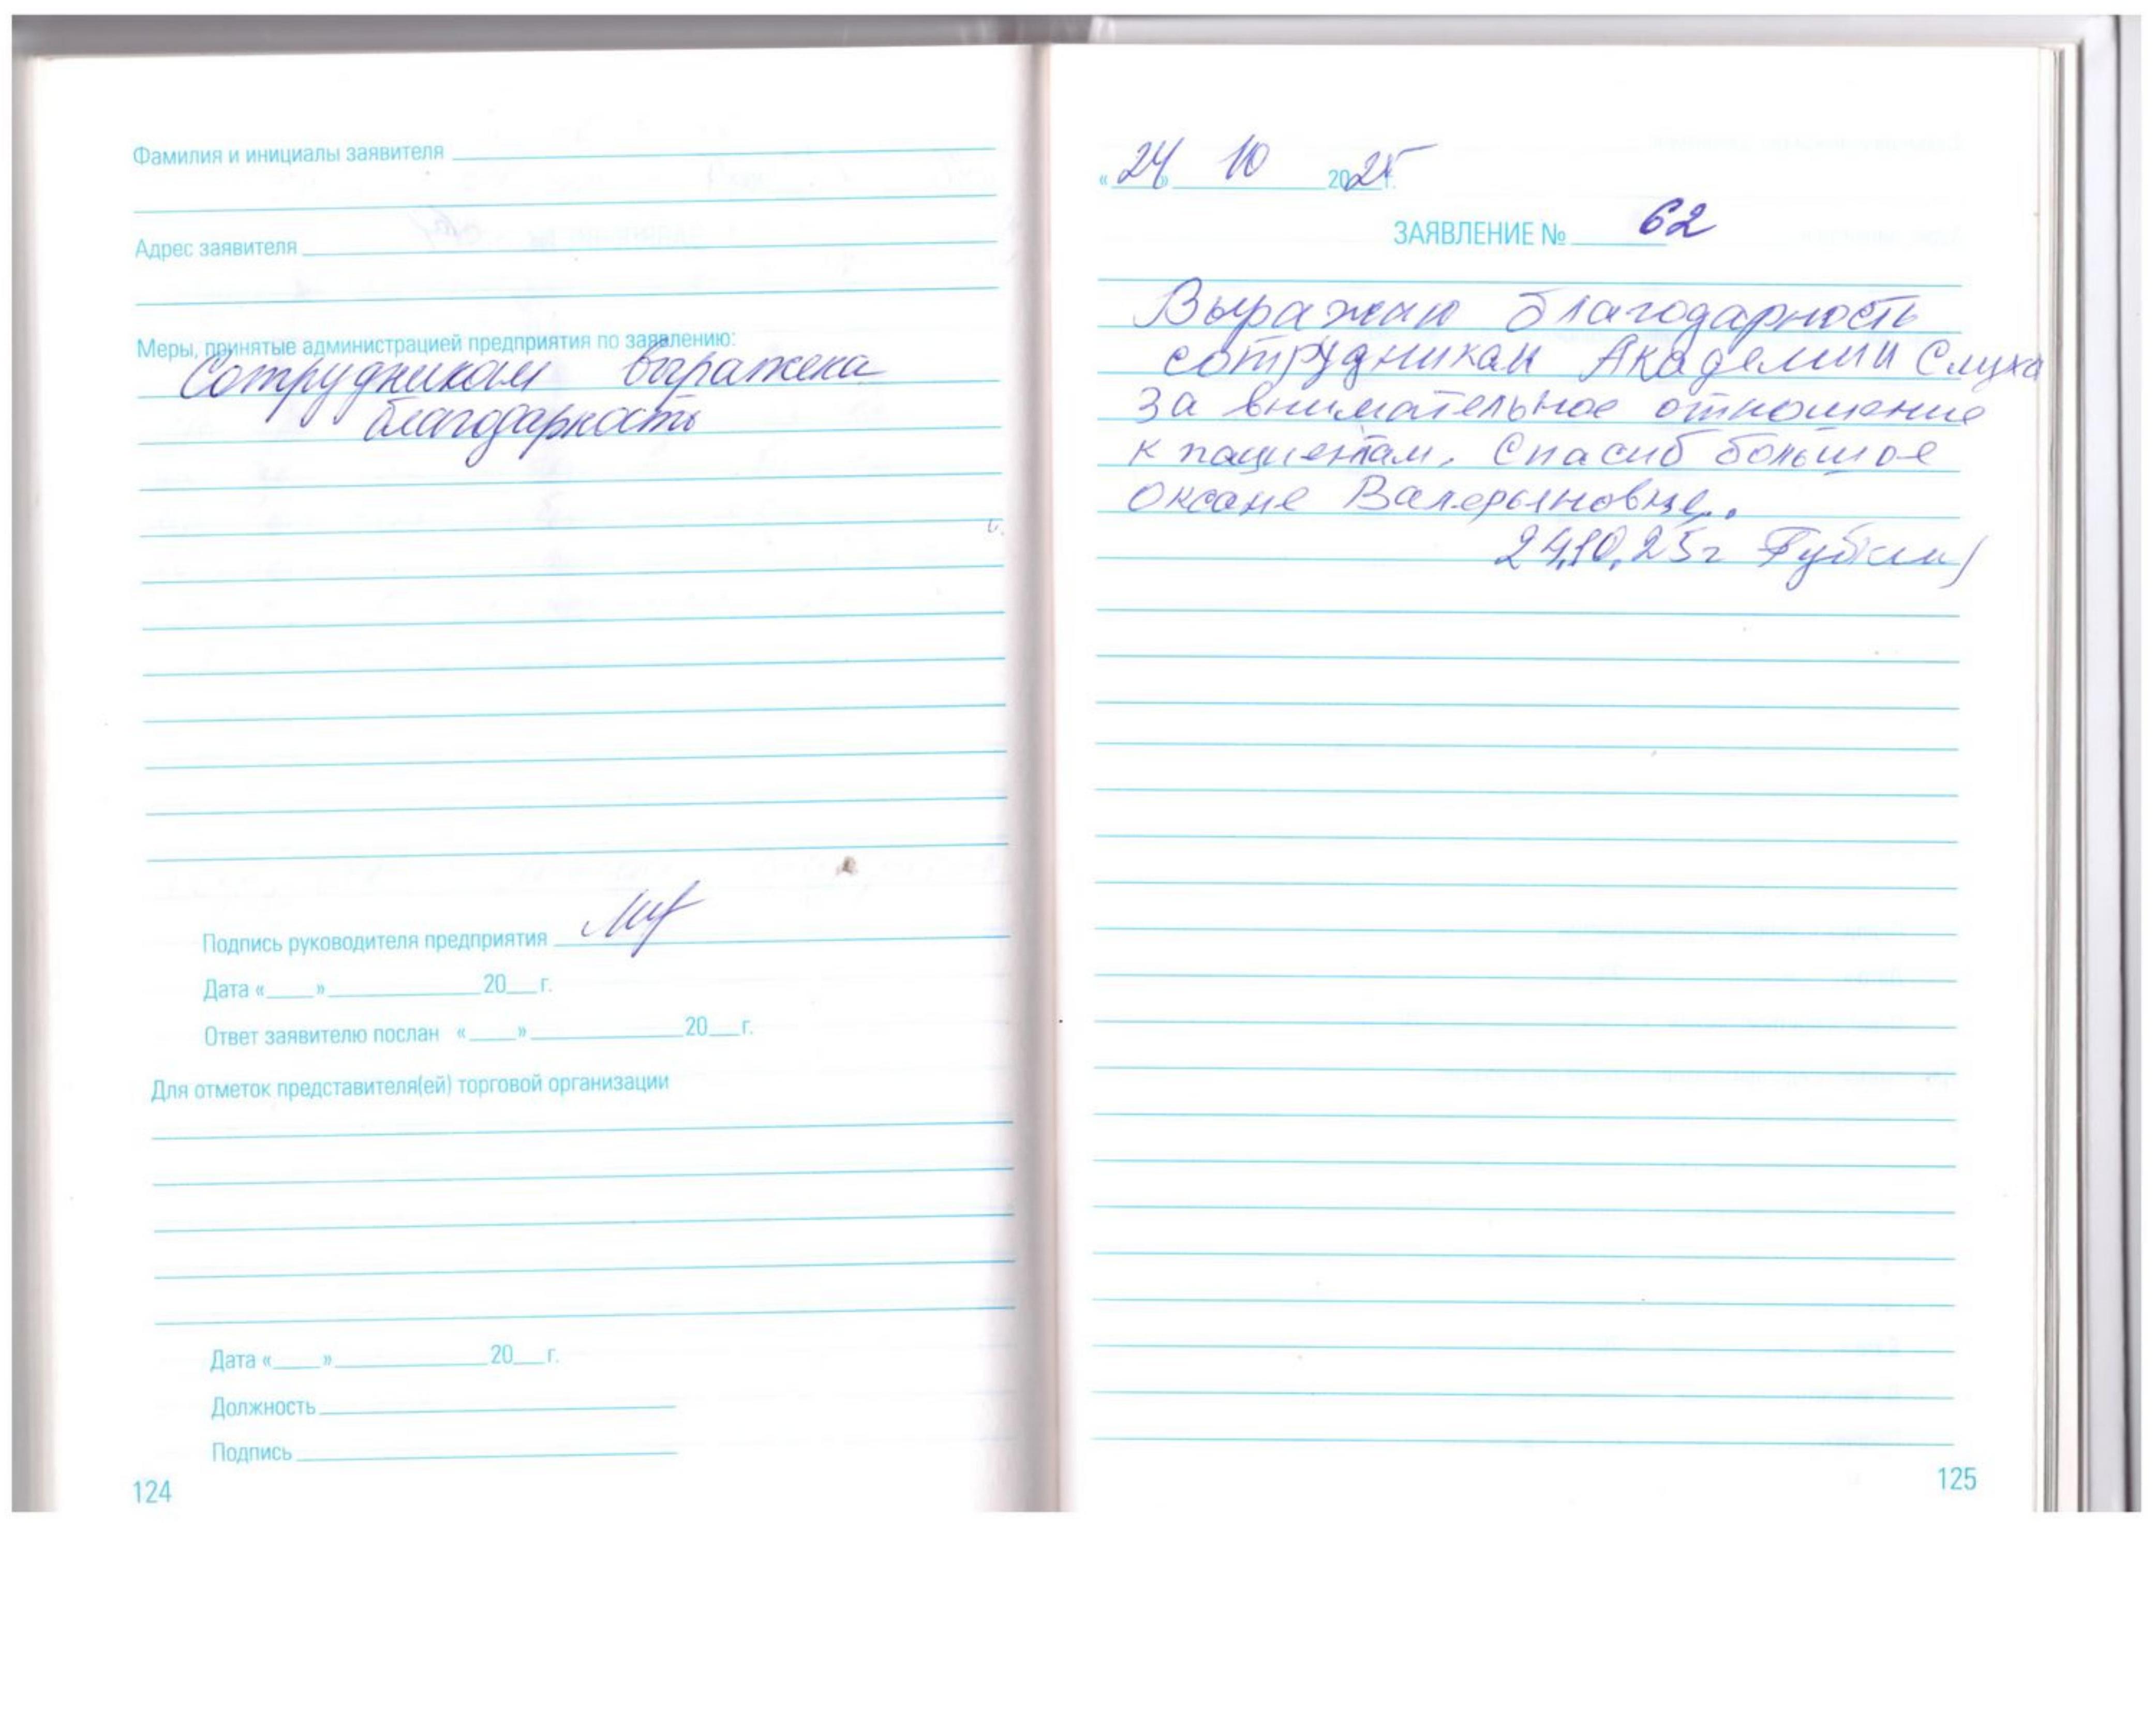 Фамилия и инициалы заявителя
Адрес заявителя
Меры, принятые администрацией предприятия по заявлению:
Сотрудникам выражена
благодарность
Подпись руководителя предприятия
Дата «____»____________20___г.
Ответ заявителю послан «____»____________20___г.
Для отметок представителя(ей) торговой организации
Дата «____»____________20___г.
Должность
Подпись
124
«24» 10 2025г.
ЗАЯВЛЕНИЕ № 62
Выражаю благодарность
сотрудникам Академии Слуха
за внимательное отношение
к пациентам. Спасиб большое
Оксане Валерьяновне.
24.10.25г
125